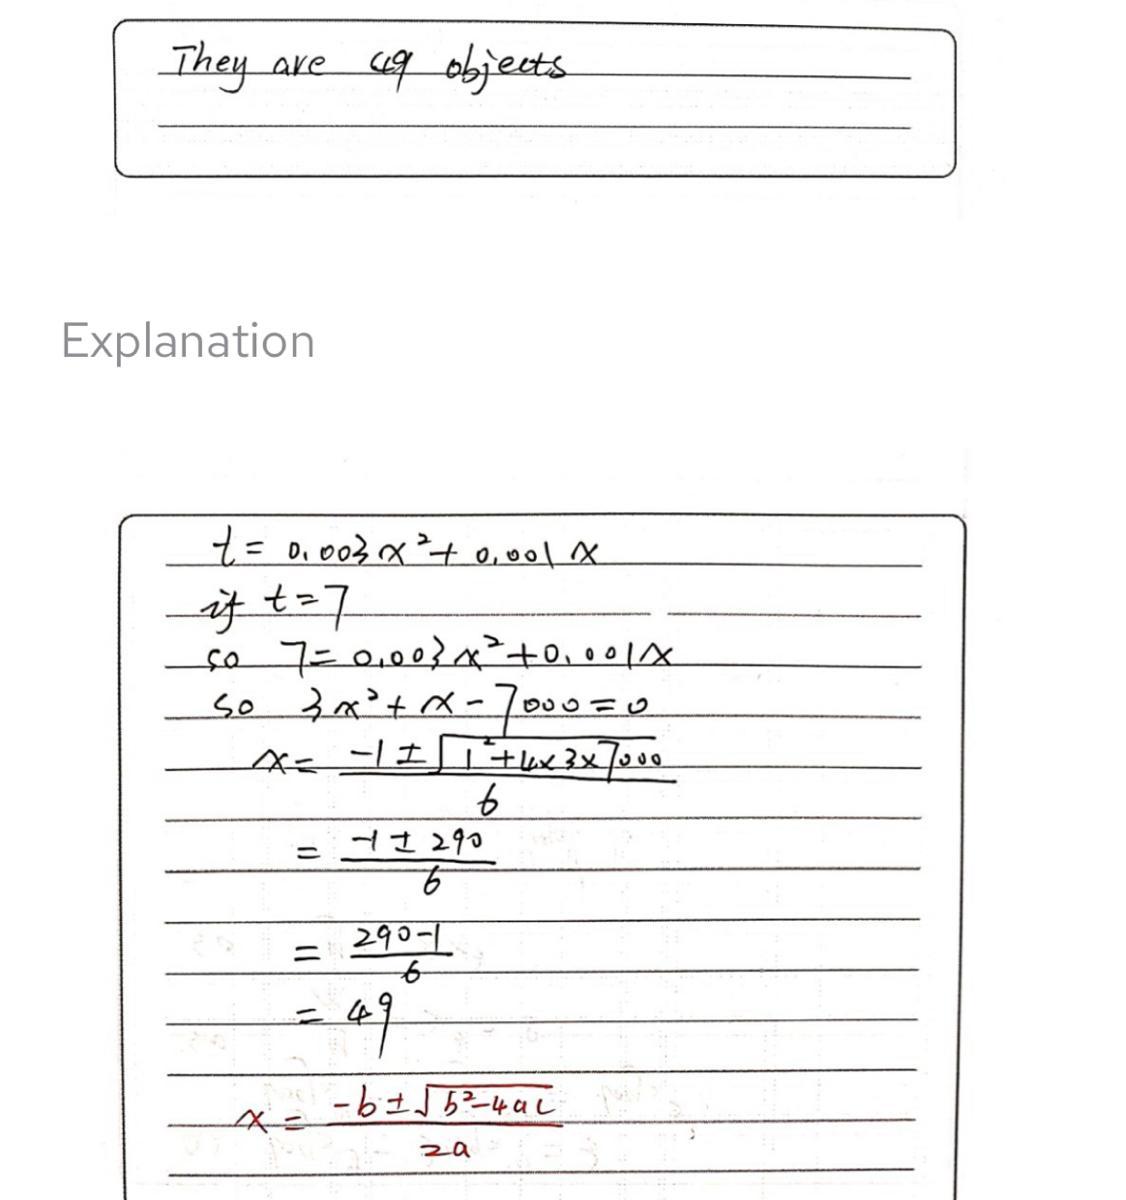 They are 49 objects
Explanation
t = 0.003x² + 0.001x
if t=7
so 7= 0.003x² + 0.001x
so 3x² + x - 7000 = 0
x = (-1 ± √(1² + 4×3×7000)) / 6
= (-1 ± 290) / 6
= (290-1) / 6
= 49
x = (-b ± √(b²-4ac)) / 2a